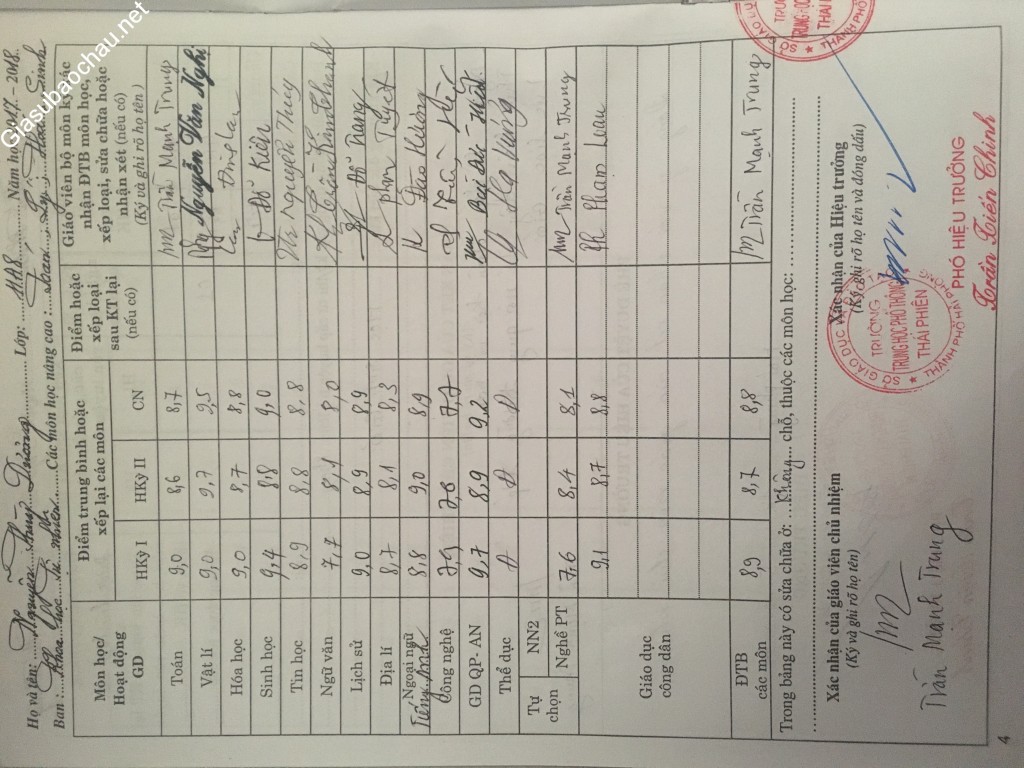 Họ và tên: Nguyễn Tùng Dương Lớp: 11A8 Năm học 2017 - 2018
Ban: Khoa học tự nhiên Các môn học nâng cao: Toán, Lý, Hóa, Sinh
Môn học/ Hoạt động GD
Điểm trung bình hoặc xếp lại các môn
Điểm hoặc xếp loại sau KT lại (nếu có)
Giáo viên bộ môn ký xác nhận ĐTB môn học, xếp loại, sửa chữa hoặc nhận xét (nếu có)
(Ký và ghi rõ họ tên)
HKỳ I HKỳ II CN
Toán 9,0 8,6 8,7 Trần Mạnh Trung
Vật lí 9,0 9,7 9,5 Nguyễn Văn Nghi
Hóa học 9,0 8,7 8,8
Sinh học 9,4 8,8 9,0 Đỗ Kiên
Tin học 8,9 8,8 8,8 Nguyễn Thúy
Ngữ văn 7,7 8,1 8,0
Lịch sử 9,0 8,9 8,9
Địa lí 8,7 8,1 8,3 Phạm Thị
Ngoại ngữ Tiếng Anh 8,8 9,0 8,9
Công nghệ 7,9 7,6 7,7
GD QP - AN 9,7 8,9 9,2 Bùi Đức
Thể dục Đ Đ Đ
Tự chọn NN2
Nghề PT 7,6 8,4 8,1 Trần Mạnh Trung
Giáo dục công dân 9,1 8,7 8,8 Phan Luau
ĐTB các môn 8,9 8,7 8,8 Trần Mạnh Trung
Trong bảng này có sửa chữa ở: Không chỗ, thuộc các môn học:
Xác nhận của giáo viên chủ nhiệm
(Ký và ghi rõ họ tên)
Trần Mạnh Trung
Xác nhận của Hiệu trưởng
(Ký, ghi rõ họ tên và đóng dấu)
SỞ GIÁO DỤC
TRƯỜNG
TRUNG HỌC PHỔ THÔNG
THÁI PHIÊN
THÀNH PHỐ HẢI PHÒNG
PHÓ HIỆU TRƯỞNG
Trần Tiến Chinh
4
Giasubaochau.net